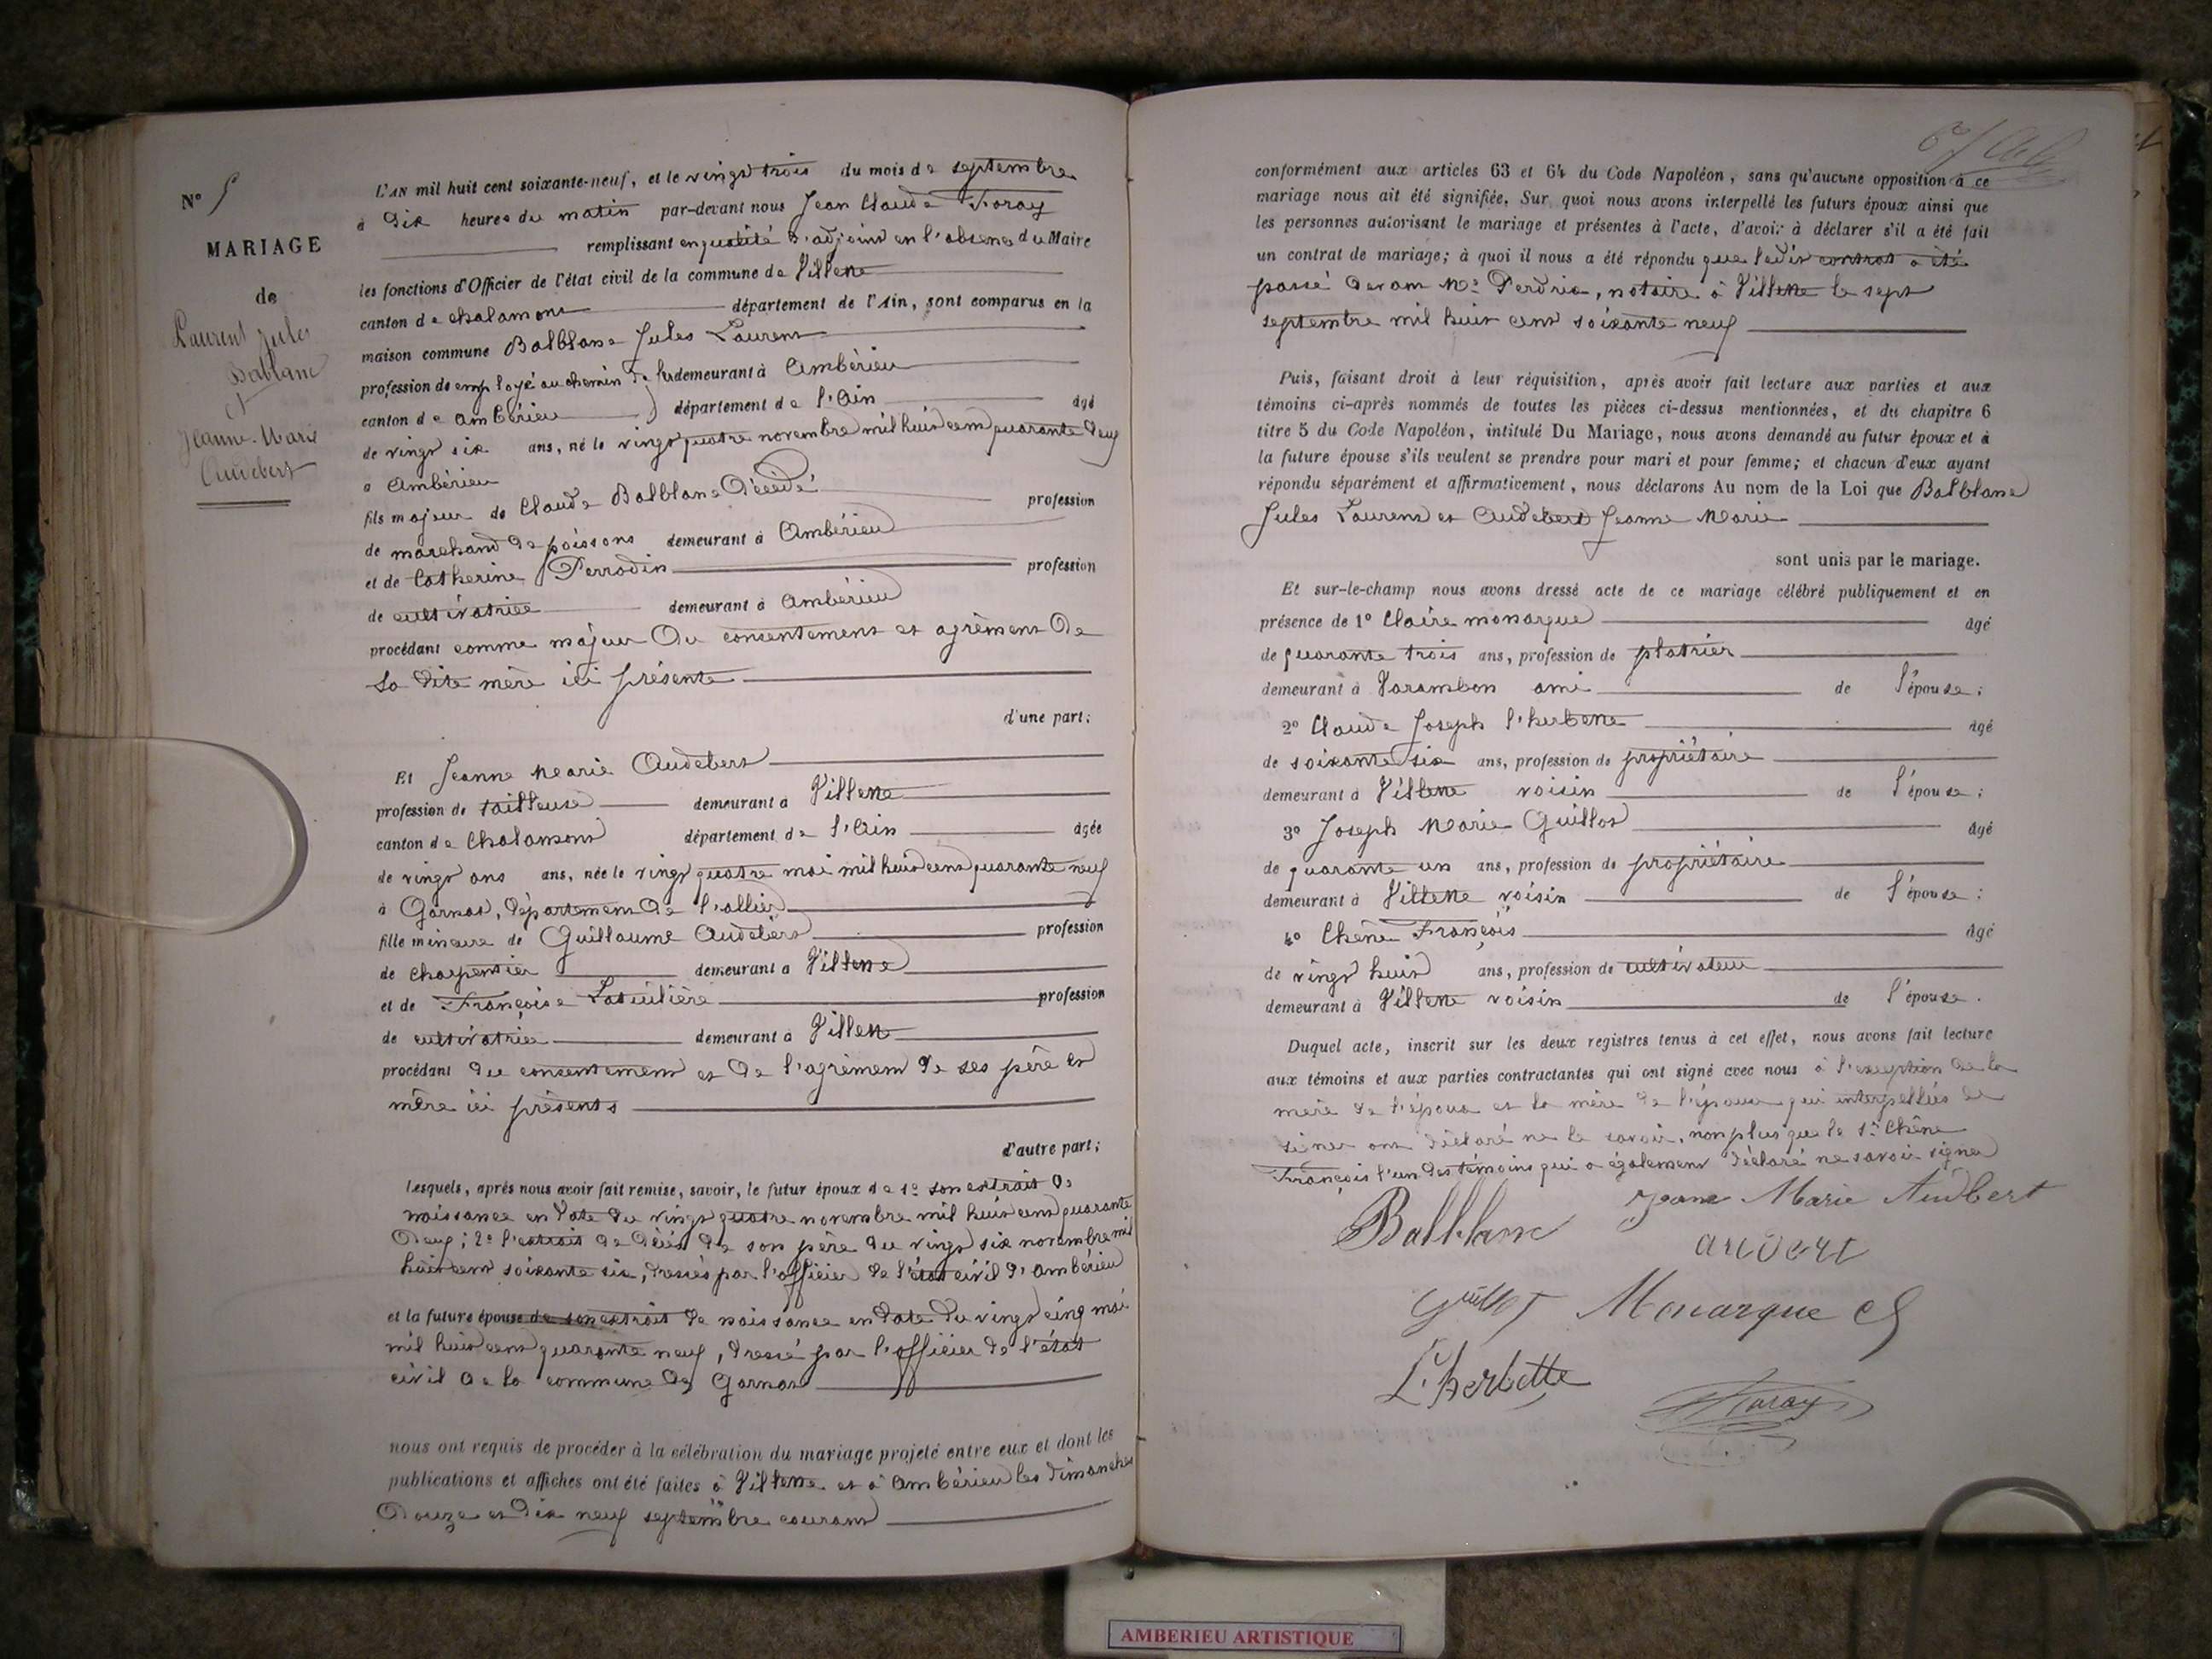 N° 5
MARIAGE
de
Laurent Jules
Balblanc
et
Jeanne-Marie
Audebert
L'AN mil huit cent soixante-neuf, et le vingt trois du mois de septembre
à dix heures du matin par-devant nous Jean Claude Foray
remplissant en qualité d'adjoint en l'absence du Maire
les fonctions d'Officier de l'état civil de la commune de Villette
canton de chalamont département de l'Ain, sont comparus en la
maison commune Balblanc Jules Laurent
profession de employé au chemin de fer demeurant à Ambérieu
canton de ambérieu département de l'Ain âgé
de vingt six ans, né le vingt quatre novembre mil huit cent quarante deux
à Ambérieu
fils majeur de Claude Balblanc décédé profession
de marchand de poissons demeurant à Ambérieu
et de Catherine Perrodin profession
de cultivatrice demeurant à Ambérieu
procédant comme majeur du consentement et agrèment de
sa dite mère ici présente
d'une part;
Et Jeanne Marie Audebert
profession de tailleuse demeurant à Villette
canton de Chalamont département de l'Ain âgée
de vingt ans ans, née le vingt quatre mai mil huit cent quarante neuf
à Garnat, département de l'allier
fille mineure de Guillaume Audebert profession
de charpentier demeurant à Villette
et de Françoise profession
de cultivatrice demeurant à Villette
procédant du consentement et de l'agrèment de ses père et
mère ici présents
d'autre part;
Lesquels, après nous avoir fait remise, savoir, le futur époux de 1° son extrait de
naissance en date du vingt quatre novembre mil huit cent quarante
deux; 2° l'extrait de décès de son père du vingt six novembre mil
huit cent soixante six, dressés par l'officier de l'état civil d'ambérieu
et la future épouse de son extrait de naissance en date du vingt cinq mai
mil huit cent quarante neuf, dressé par l'officier de l'état
civil de la commune de Garnat
nous ont requis de procéder à la célébration du mariage projeté entre eux et dont les
publications et affiches ont été faites à Villette et à Ambérieu les dimanches
douze et dix neuf septembre courant
conformément aux articles 63 et 64 du Code Napoléon, sans qu'aucune opposition à ce
mariage nous ait été signifiée. Sur quoi nous avons interpellé les futurs époux ainsi que
les personnes autorisant le mariage et présentes à l'acte, d'avoir à déclarer s'il a été fait
un contrat de mariage; à quoi il nous a été répondu que ledit contrat a été
passé devant Me Perdrix, notaire à Villette le sept
septembre mil huit cent soixante neuf
Puis, faisant droit à leur réquisition, après avoir fait lecture aux parties et aux
témoins ci-après nommés de toutes les pièces ci-dessus mentionnées, et du chapitre 6
titre 5 du Code Napoléon, intitulé Du Mariage, nous avons demandé au futur époux et à
la future épouse s'ils veulent se prendre pour mari et pour femme; et chacun d'eux ayant
répondu séparément et affirmativement, nous déclarons Au nom de la Loi que Balblanc
Jules Laurent et Audebert Jeanne Marie
sont unis par le mariage.
Et sur-le-champ nous avons dressé acte de ce mariage célébré publiquement et en
présence de 1° Claire monarque âgé
de quarante trois ans, profession de platrier
demeurant à Varambon ami de l'épouse;
2° Claude Joseph l'herbette âgé
de soixante six ans, profession de propriétaire
demeurant à Villette voisin de l'épouse;
3° Joseph Marie Guillot âgé
de quarante un ans, profession de propriétaire
demeurant à Villette voisin de l'épouse;
4° Chêne François âgé
de vingt huit ans, profession de cultivateur
demeurant à Villette voisin de l'épouse.
Duquel acte, inscrit sur les deux registres tenus à cet effet, nous avons fait lecture
aux témoins et aux parties contractantes qui ont signé avec nous à l'exception de la
mère de l'époux et la mère de l'épouse qui interpellées de
signer ont déclaré ne le savoir, non plus que le sr Chêne
François l'un des témoins qui a également déclaré ne savoir signer
Balblanc Jeane Marie Audbert
Guillot Monarque C
L'herbette
Foray
AMBERIEU ARTISTIQUE